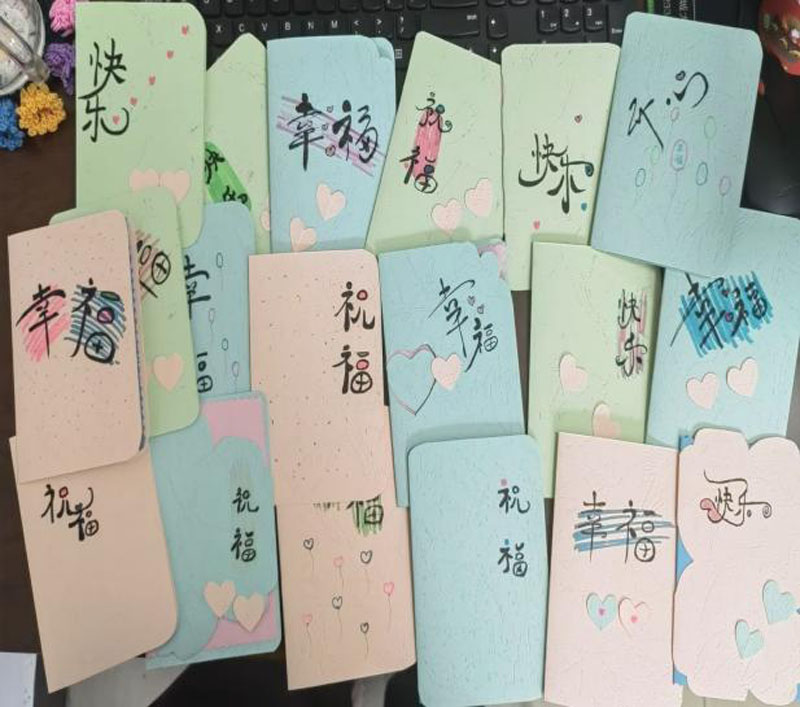 快乐
幸福
祝福
快乐
开心
幸福
幸福
祝福
幸福
快乐
幸福
祝福
祝福
福
祝福
幸福
快乐